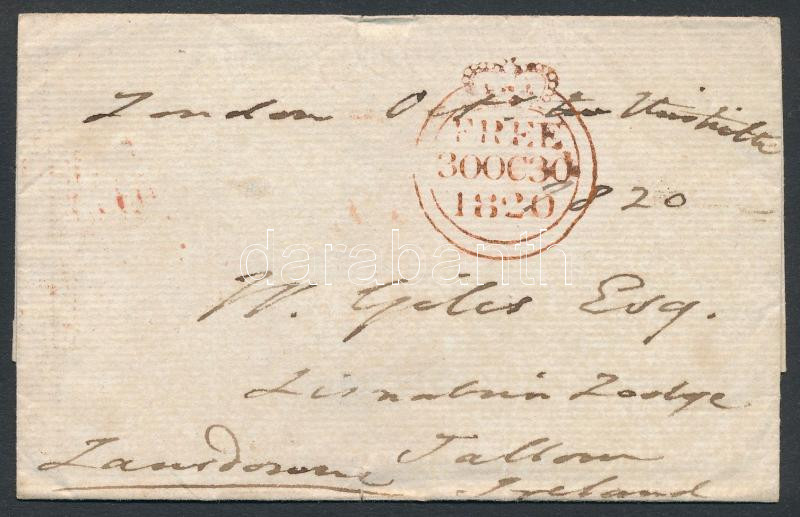 London Octr the thirtieth
FREE
30OC30
1820
1820
darabanth
W. Giles Esq.
Lisnabrin Lodge
Lansdowne Tallow
Ireland